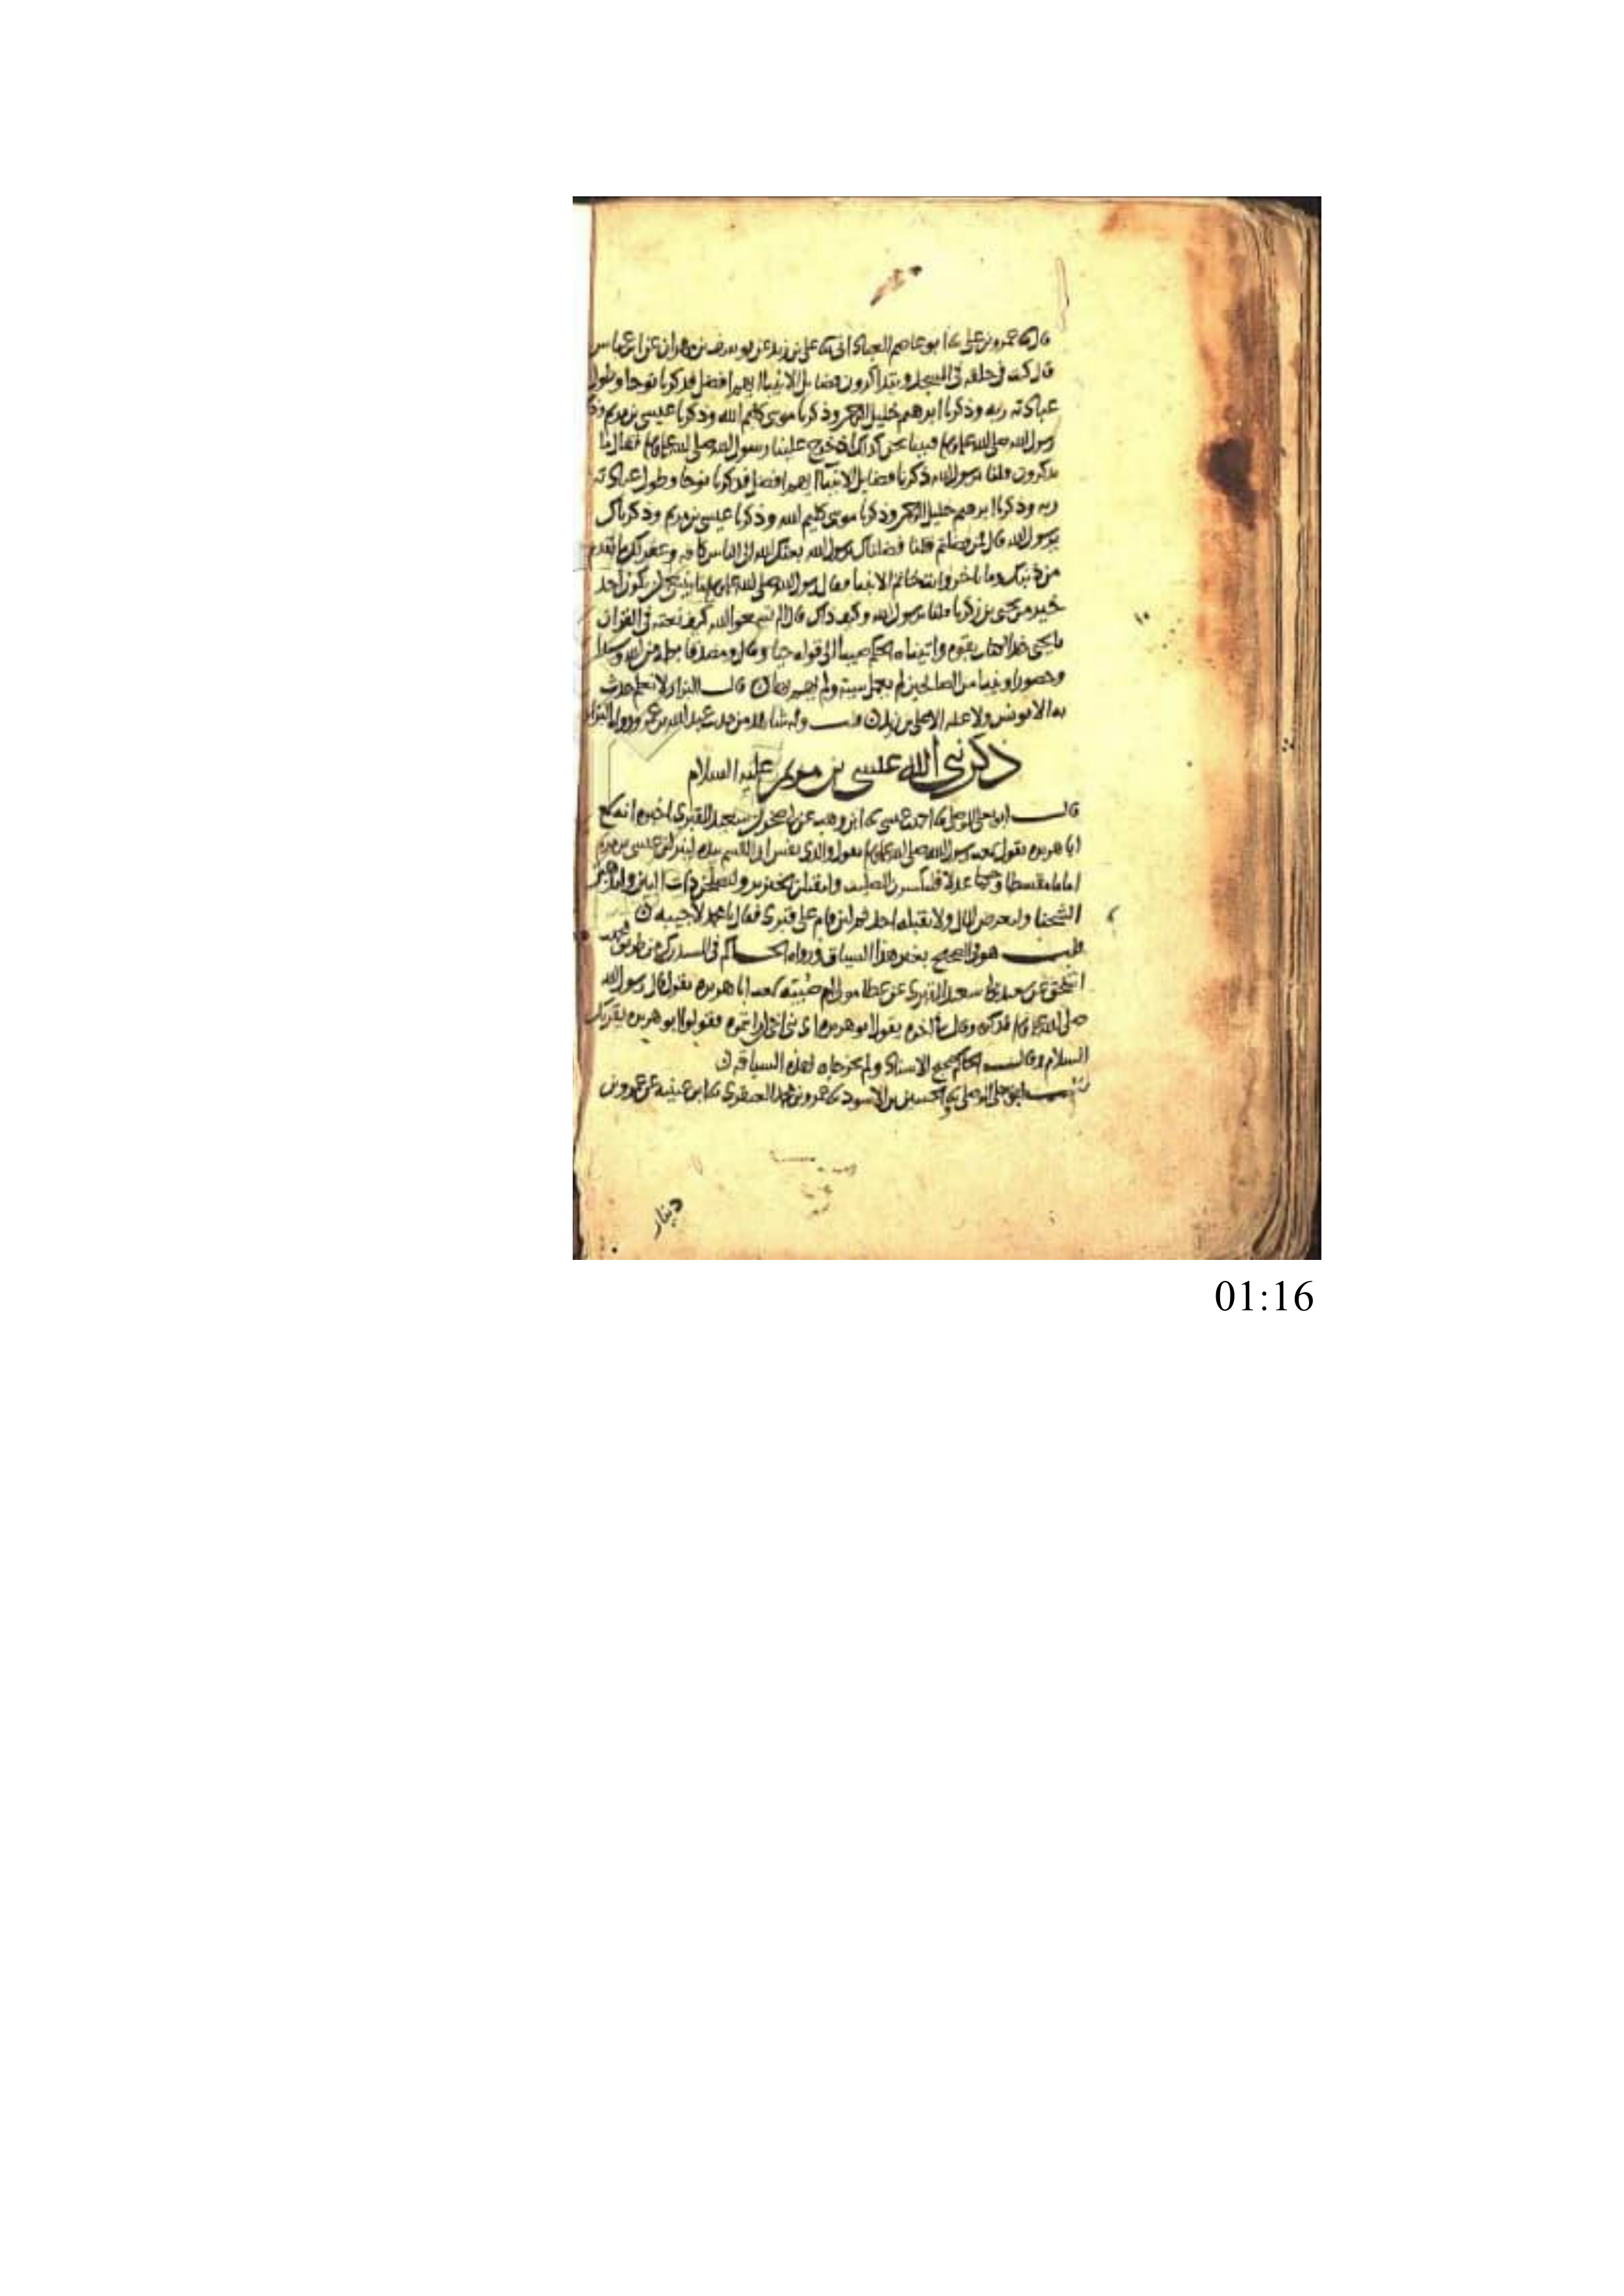 قال نا عمرو بن علي نا ابو عاصم العباداني نا علي بن زيد عن يوسف بن مهران عن ابن عباس
قال كنت في حلقة في المسجد نتذاكر فضايل الانبيا ايهم افضل فذكرنا نوحا وطول
عبادته ربه وذكرنا ابرهيم خليل الرحمن وذكرنا موسى كليم الله وذكرنا عيسى بن مريم وذكرنا
رسول الله صلى الله عليه وسلم فبينا نحن كذلك اذ خرج علينا رسول الله صلى الله عليه وسلم فقال ما
تذكرون قلنا يرسول الله ذكرنا فضايل الانبيا ايهم افضل فذكرنا نوحا وطول عبادته
ربه وذكرنا ابرهيم خليل الرحمن وذكرنا موسى كليم الله وذكرنا عيسى بن مريم وذكرناك
يرسول الله قال فمن فضلتم قلنا فضلناك يرسول الله بعثك الله الى الناس كافة وغفر لك ما تقدم
من ذنبك وما تاخر وانت خاتم الانبيا فقال رسول الله صلى الله عليه وسلم ما ينبغي ان يكون احد
خير من يحيى بن زكريا قلنا يرسول الله وكيف ذاك قال الم تسمعوا الله كيف نعته في القران
يا يحيى خذ الكتاب بقوة واتيناه الحكم صبيا الى قوله حيا وقال ومصدقا بكلمة من الله وسيدا
وحصورا ونبيا من الصالحين لم يعمل سيئة ولم يهم بها قال البزار لا نعلم حدث
به الا يونس ولا عنه الا علي بن زيد قلت وله شاهد من حديث عبد الله بن عمرو رواه البزار
ذكر نبي الله عيسى بن مريم عليه السلام
قال ابو يعلى الموصلي نا احمد بن عيسى نا ابن وهب عن ابي صخر ان سعيد المقبري اخبره انه سمع
ابا هريرة يقول سمعت رسول الله صلى الله عليه وسلم يقول والذي نفس ابي القسم بيده لينزلن عيسى بن مريم
اماما مقسطا وحكما عدلا فليكسرن الصليب وليقتلن الخنزير وليصلحن ذات البين وليذهبن
الشحنا وليعرضن المال ولا يقبله احد ثم لئن قام على قبري فقال يا محمد لاجيبنه
قلت هو في الصحيح بغير هذا السياق ورواه الحاكم في المستدرك من طريق محمد
اسحق عن سعيد بن ابي سعيد المقبري عن عطا مولى ام صبية سمعت ابا هريرة يقول قال رسول الله
صلى الله عليه وسلم فذكره وقال في اخره يقول ابو هريرة اي بني اخي ان رايتموه فقولوا ابو هريرة يقريك
السلام وقال الحاكم صحيح الاسناد ولم يخرجاه بهذه السياقة
قال ابو يعلى الموصلي نا الحسين بن الاسود نا عمرو بن محمد العنقزي نا ابن عيينة عن عمرو بن
دينار
01:16